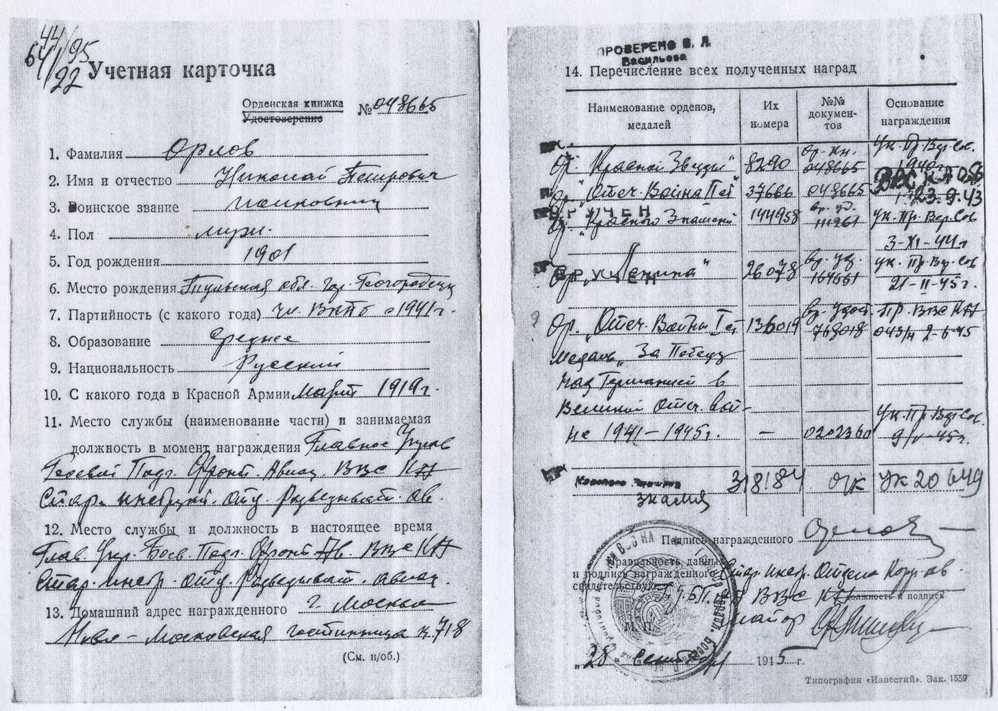 44/95
64/92
Учетная карточка
Орденская книжка
Удостоверение
№ 048665
1. Фамилия Орлов
2. Имя и отчество Николай Петрович
3. Воинское звание полковник
4. Пол муж.
5. Год рождения 1901
6. Место рождения Тульская обл. гор. Богородицк
7. Партийность (с какого года) чл. ВКПб с 1941г.
8. Образование Среднее
9. Национальность Русский
10. С какого года в Красной Армии Март 1919г.
11. Место службы (наименование части) и занимаемая
должность в момент награждения Главное Управ
Боевой Подг. Фронт. Авиац. ВВС КА
Старш. инспекц. отд. разведыват. ав.
12. Место службы и должность в настоящее время
Глав. Упр. Боев. Подг. Фронт Ав. ВВС КА
Стар. инспр. отд. Разведыват. авиац.
13. Домашний адрес награжденного г. Москва
Ново-Московская гостинница к. 718
(См. н/об.)
ПРОВЕРЕНО В. Л.
Васильева
14. Перечисление всех полученных наград
Наименование орденов, медалей
Их номера
№№ документов
Основание награждения
Ор. "Красной Звезды" 8290 Ор. кн. 048665 Ук. Пр. Вер. Сов.
Ор. "Отеч. Война I ст" 37666 048665 23.9.43
ВРУЧЕН
Ор. "Красного Знамени" 144958 Вр. уд. Ук. Пр. Вер. Сов
3-XI-44г
ВРУЧЕН
Ор. "Ленина" 26078 Вр. уд. Ук. Пр. Вер. Сов
21-II-45г.
Ор. Отеч. Войны I ст 136019 Вр. Удост. 769018 Пр. ВВС КА 043/н 2-6-45
Медаль "За Победу
над Германией в
Великой Отеч. вой-
не 1941-1945г. — 0202360 Ук. Пр. Вер. Сов.
9/V-45г.
Красного Знамени
знамя 318184 О/К УК 20 649
Подпись награжденного Орлов
Правильность данных
и подпись награжденного
свидетельствую
ВВС КА
должность и подпись
майор
"28" сентября 1945 г.
Типография «Известий». Зак. 1559